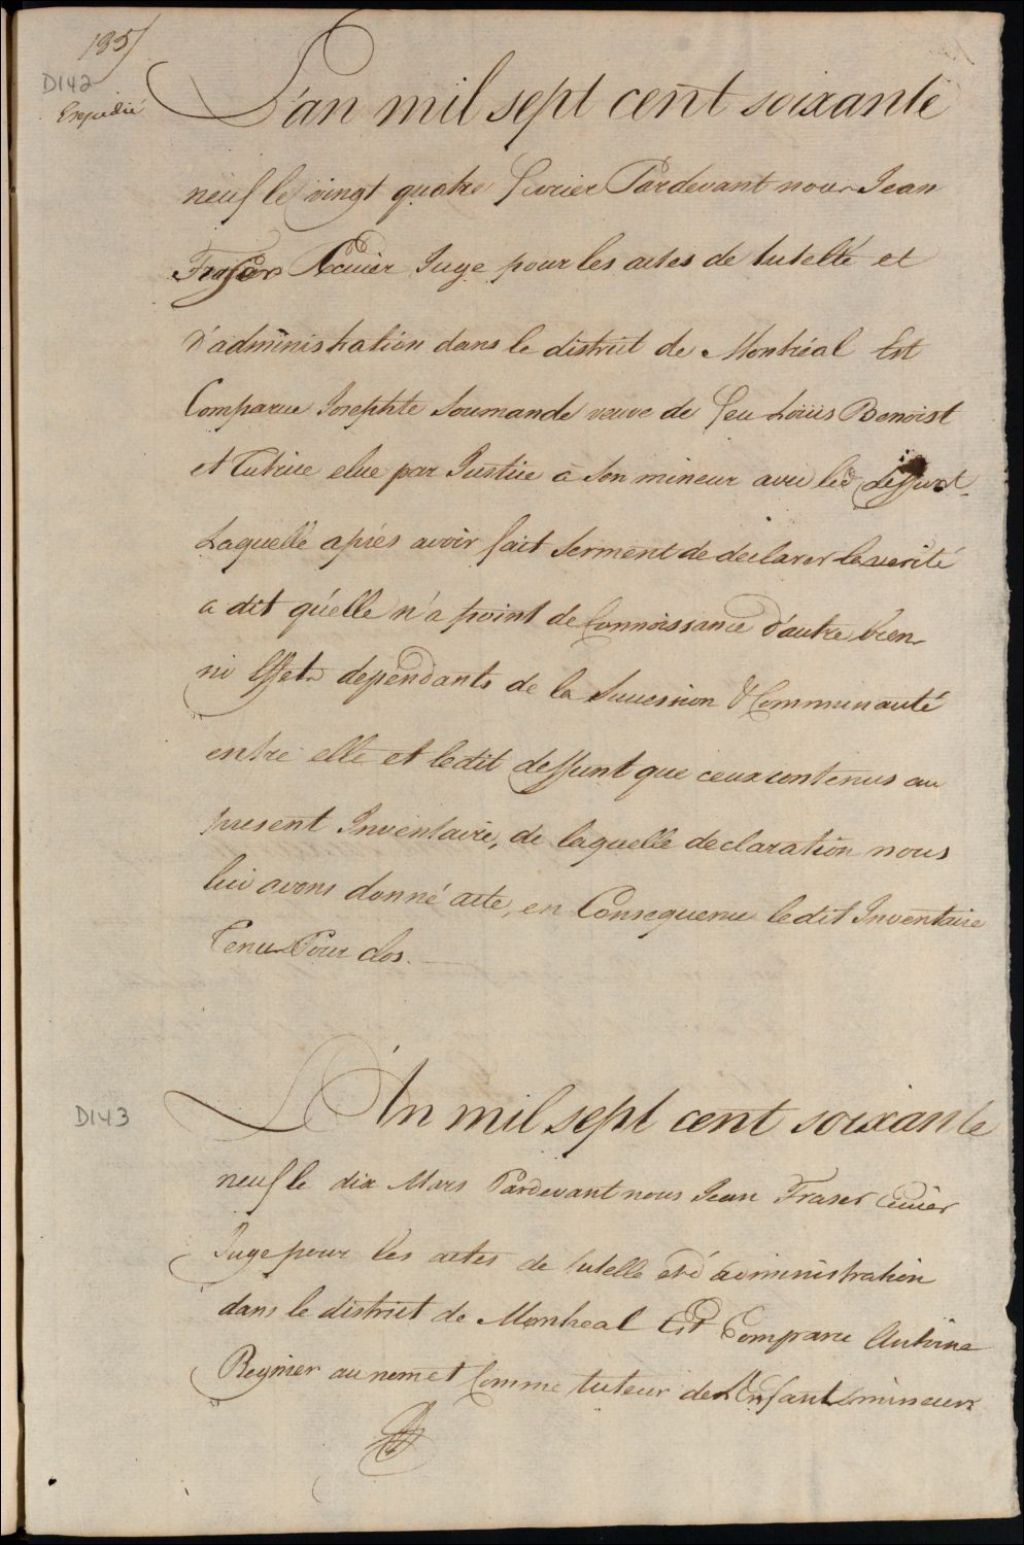 135/
D142
Expedié
L'an mil sept cent soixante
neuf le vingt quatre fevrier Pardevant nous Jean
Fraser Ecuier Juge pour les actes de tutelle et
d'administration dans le district de Montréal Est
Comparue Josephte Soumande veuve de feu Loüis Benoist
et Tutrice elue par Justice a son mineur avec led deffunt
Laquelle aprés avoir fait serment de declarer la verité
a dit qu'elle n'a point de Connoissance d'autre bien
ni Effets dependants de la Succession & Communauté
entre elle et ledit deffunt que ceux contenus au
present Inventaire, de laquelle declaration nous
lui avons donné acte, en Consequence ledit Inventaire
Tenu Pour clos.
D143
L'An mil sept cent soixante
neuf le dix Mars Pardevant nous Jean Fraser Ecuier
Juge pour les actes de tutelle et d'administration
dans le district de Montreal Est Comparu Antoine
Regnier au nom et Comme tuteur des Enfants mineurs